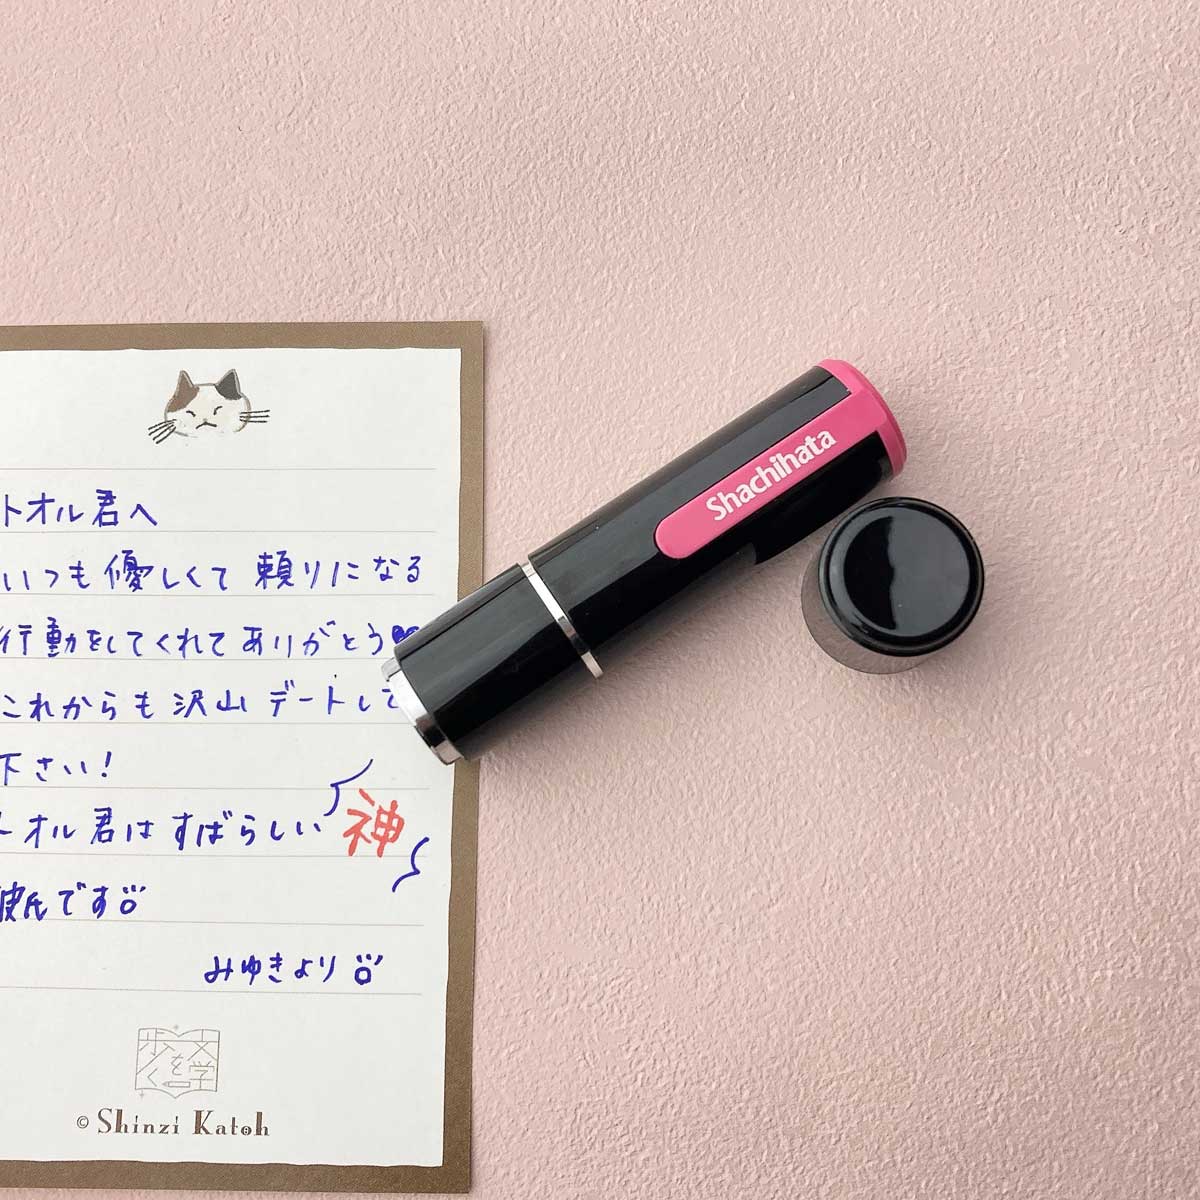 トオル君へ
いつも優しくて 頼りになる
行動をしてくれてありがとう
これからも沢山デートして
下さい!
トオル君はすばらしい 神
彼氏です
みゆきより
文学
を
歩く
© Shinzi Katoh
Shachihata